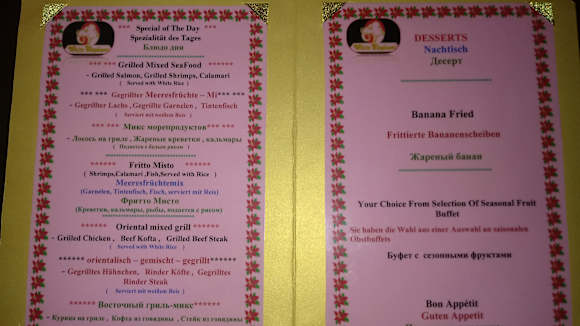 *** Special of The Day ***
Spezialität des Tages
Блюдо дня
*** *** Grilled Mixed SeaFood ******
- Grilled Salmon, Grilled Shrimps, Calamari
( Served with White Rice )
*** *** Gegrillter Meeresfrüchte – Mi*** ***
- Gegrillter Lachs , Gegrillte Garnelen , Tintenfisch
( Serviert mit weißem Reis )
*** *** Микс морепродуктов*** ***
- Лосось на гриле , Жареные креветки , кальмары
( Подается с белым рисом )
****** Fritto Misto ******
( Shrimps,Calamari ,Fish,Served with Rice )
Meeresfrüchtemix
(Garnelen, Tintenfisch, Fisch, serviert mit Reis)
Фритто Мисто
(Креветки, кальмары, рыбы, подается с рисом)
****** Oriental mixed grill ******
- Grilled Chicken , Beef Kofta , Grilled Beef Steak
( Served with White Rice )
****** orientalisch – gemischt – gegrillt******
- Gegrilltes Hähnchen, Rinder Köfte , Gegrilltes
Rinder Steak
( Serviert mit weißem Reis )
****** Восточный гриль-микс******
- Курица на гриле , Кофта из говядины , Стейк из говядины
DESSERTS
Nachtisch
Десерт
Banana Fried
Frittierte Bananenscheiben
Жареный банан
Your Choice From Selection Of Seasonal Fruit
Buffet
Sie haben die Wahl aus einer Auswahl an saisonalen
Obstbuffets
Буфет с сезонными фруктами
Bon Appétit
Guten Appetit